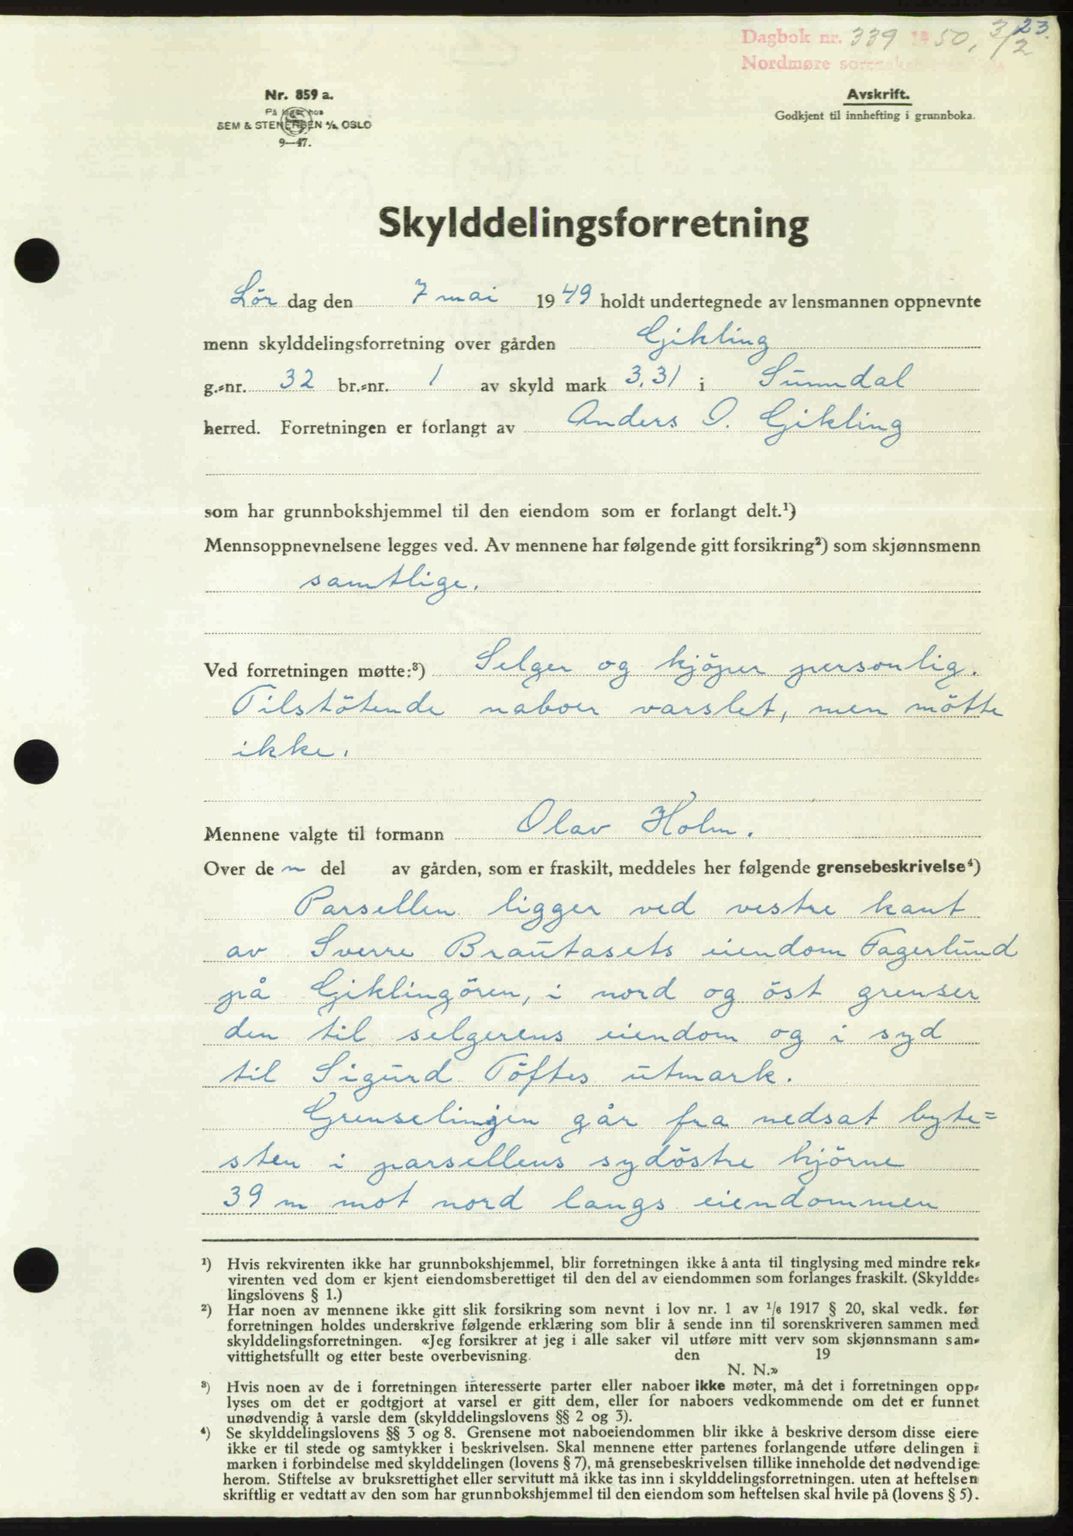 23.
Dagbok nr. 339 19 50, 3/2
Nordmøre
Nr. 859 a.
På lager hos
SEM & STENERSEN A/S, OSLO
9—47.
Avskrift.
Godkjent til innhefting i grunnboka.
Skylddelingsforretning
Lör dag den 7 mai 1949 holdt undertegnede av lensmannen oppnevnte
menn skylddelingsforretning over gården Gikling
g.-nr. 32 br.-nr. 1 av skyld mark 3,31 i Sunndal
herred. Forretningen er forlangt av Anders O. Gikling
som har grunnbokshjemmel til den eiendom som er forlangt delt.¹)
Mennsoppnevnelsene legges ved. Av mennene har følgende gitt forsikring²) som skjønnsmenn
samtlige.
Ved forretningen møtte:³) Selger og kjöper personlig.
Tilstötende naboer varslet, men mötte
ikke.
Mennene valgte til formann Olav Holm.
Over de n del av gården, som er fraskilt, meddeles her følgende grensebeskrivelse⁴)
Parsellen ligger ved vestre kant
av Sverre Brautasets eiendom Fagerlund
på Giklingören, i nord og öst grenser
den til selgerens eiendom og i syd
til Sigurd Töftes utmark.
Grenselinjen går fra nedsat byte=
sten i parsellens sydöstre hjörne
39 m mot nord langs eiendommen
¹) Hvis rekvirenten ikke har grunnbokshjemmel, blir forretningen ikke å anta til tinglysing med mindre rek-
virenten ved dom er kjent eiendomsberettiget til den del av eiendommen som forlanges fraskilt. (Skyldde-
lingslovens § 1.)
²) Har noen av mennene ikke gitt slik forsikring som nevnt i lov nr. 1 av 1/6 1917 § 20, skal vedk. før
forretningen holdes underskrive følgende erklæring som blir å sende inn til sorenskriveren sammen med
skylddelingsforretningen. «Jeg forsikrer at jeg i alle saker vil utføre mitt verv som skjønnsmann sam-
vittighetsfullt og etter beste overbevisning. den 19
N. N.»
³) Hvis noen av de i forretningen interesserte parter eller naboer ikke møter, må det i forretningen opp-
lyses om det er godtgjort at varsel er gitt dem, eller for naboers vedkommende om det er funnet
unødvendig å varsle dem (skylddelingslovens §§ 2 og 3).
⁴) Se skylddelingslovens §§ 3 og 8. Grensene mot naboeiendommen blir ikke å beskrive dersom disse eiere
ikke er til stede og samtykker i beskrivelsen. Skal mennene etter partenes forlangende utføre delingen i
marken i forbindelse med skylddelingen (lovens § 7), må grensebeskrivelsen tillike inneholde det nødvendige
herom. Stiftelse av bruksrettighet eller servitutt må ikke tas inn i skylddelingsforretningen. uten at heftelsen
skriftlig er vedtatt av den som har grunnbokshjemmel til den eiendom som heftelsen skal hvile på (lovens § 5).